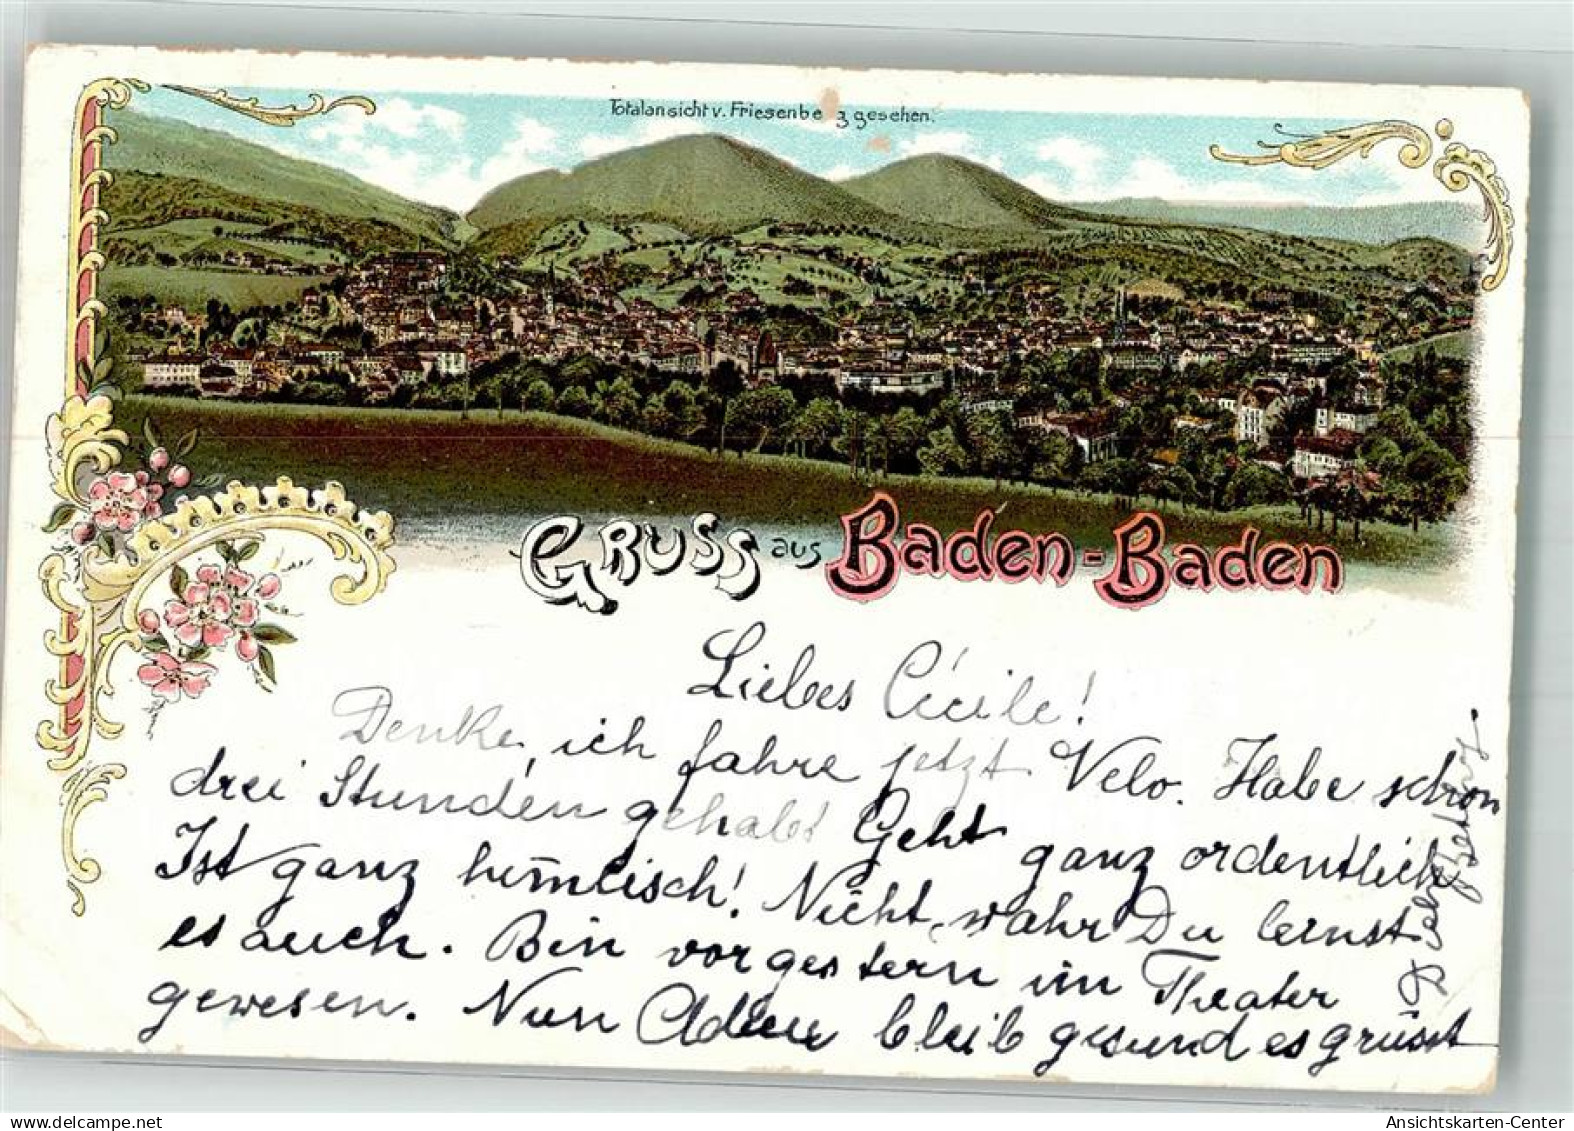 Totalansicht v. Friesenbe g gesehen.
GRUSS aus Baden-Baden
Liebes Cécile!
Denke, ich fahre jetzt Velo. Habe schon
drei Stunden gehabt Geht ganz ordentlich
Ist ganz himlisch! Nicht, wahr Du lernst
es auch. Bin vorgestern im Theater
gewesen. Nun Adieu bleib gesund es grüsst
delticampe.net
Ansichtskarten-Center